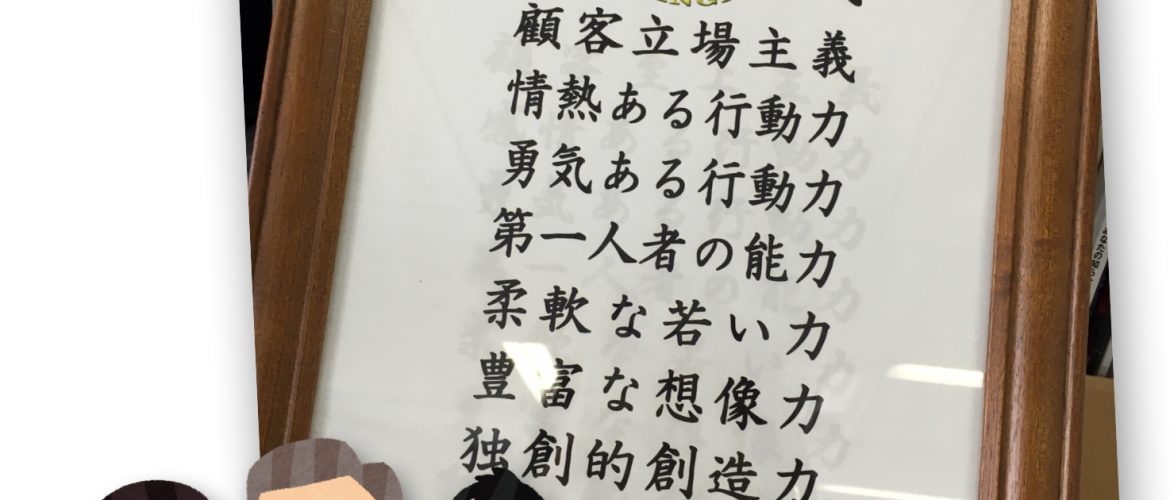 顧客立場主義
情熱ある行動力
勇気ある行動力
第一人者の能力
柔軟な若い力
豊富な想像力
独創的創造力